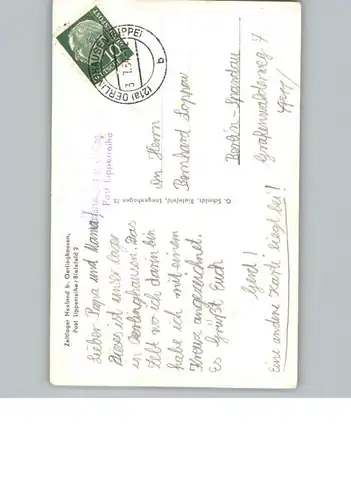 Zeltlager Neuland b. Oerlinghausen,
Post Lipperreihe/Bielefeld 2
Lieber Papa und Mama
Dieses ist unser Lager
in Oerlinghausen. Das
Zelt wo ich darin bin
habe ich mit einem
Kreuz angezeichnet.
Es Grüßt Euch
Gerd!
Eine andere Karte liegt bei!
G. Schmidt, Bielefeld,
Post Lipperreihe
(21a) OERLINGHAUSEN (LIPPE)
10
An Herrn
Bernhard Loppau
Berlin-Spandau
Grafenwalderweg 7